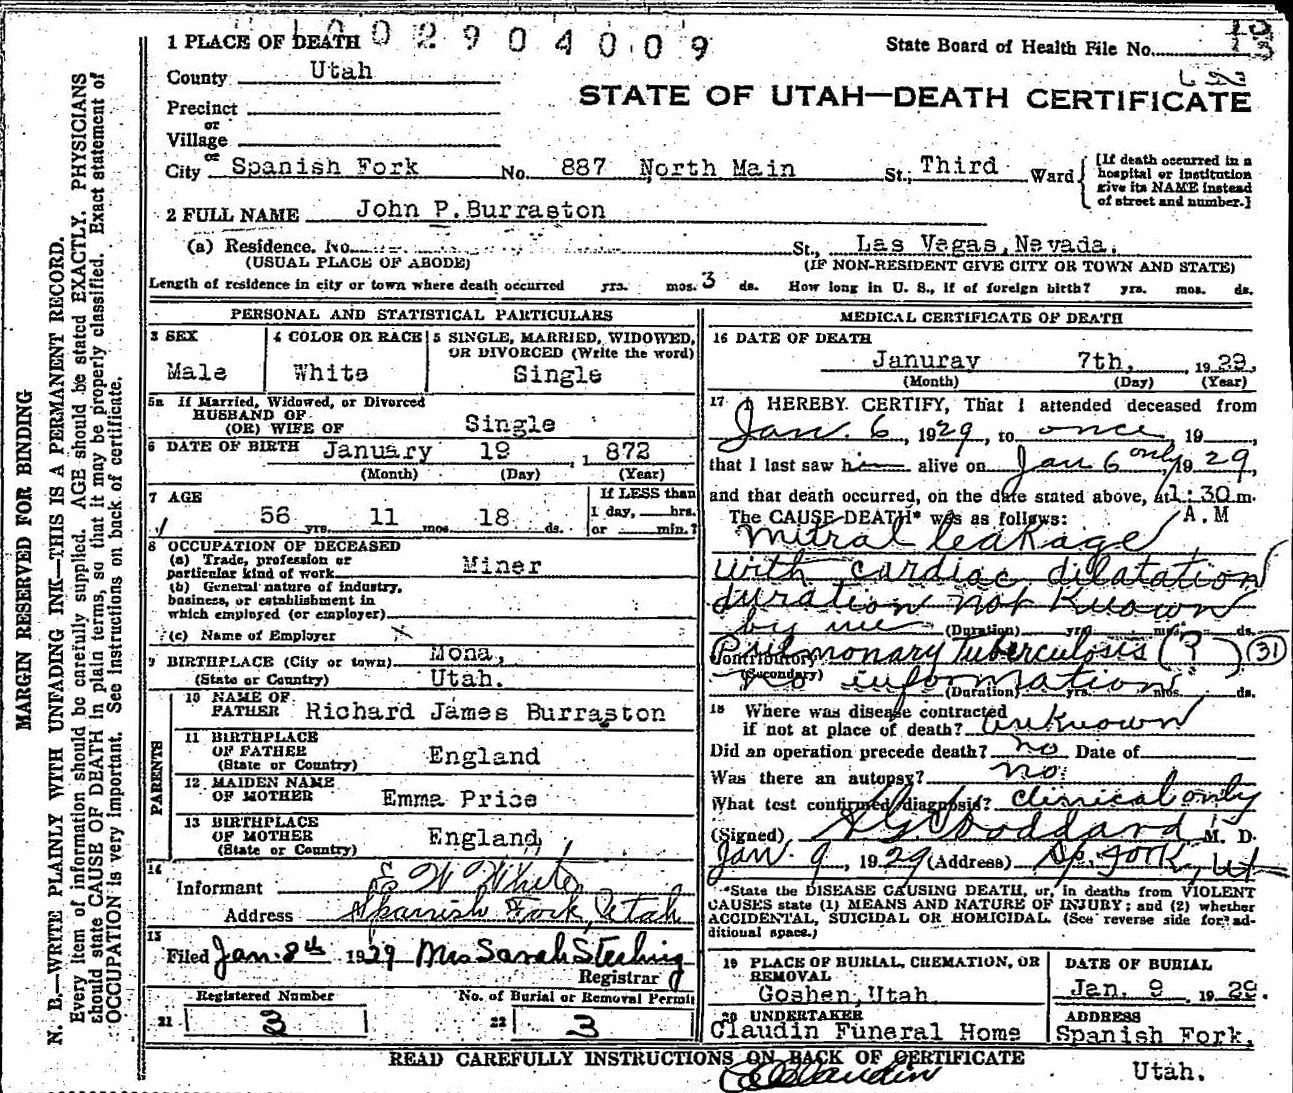 1002904009
1 PLACE OF DEATH
State Board of Health File No. 13
County Utah
STATE OF UTAH—DEATH CERTIFICATE
Precinct
or
Village
or
City Spanish Fork No. 887 North Main St., Third Ward
[If death occurred in a hospital or institution give its NAME instead of street and number.]
2 FULL NAME John P. Burraston
(a) Residence. No. St., Las Vegas, Nevada.
(USUAL PLACE OF ABODE) (IF NON-RESIDENT GIVE CITY OR TOWN AND STATE)
Length of residence in city or town where death occurred yrs. mos. 3 ds. How long in U. S., if of foreign birth? yrs. mos. ds.
PERSONAL AND STATISTICAL PARTICULARS
3 SEX
Male
4 COLOR OR RACE
White
5 SINGLE, MARRIED, WIDOWED,
OR DIVORCED (Write the word)
Single
5a If Married, Widowed, or Divorced
HUSBAND OF
(OR) WIFE OF Single
6 DATE OF BIRTH January 19 , 1872
(Month) (Day) (Year)
7 AGE
56 yrs. 11 mos. 18 ds.
If LESS than
1 day, hrs.
or min.?
8 OCCUPATION OF DECEASED
(a) Trade, profession or
particular kind of work Miner
(b) General nature of industry,
business, or establishment in
which employed (or employer)
(c) Name of Employer
9 BIRTHPLACE (City or town) Mona,
(State or Country) Utah.
PARENTS
10 NAME OF
FATHER Richard James Burraston
11 BIRTHPLACE
OF FATHER
(State or Country) England
12 MAIDEN NAME
OF MOTHER Emma Price
13 BIRTHPLACE
OF MOTHER
(State or Country) England
14
Informant E W White
Address Spanish Fork, Utah
15
Filed Jan. 8th 1929 Mrs Sarah Sterling
Registrar
Registered Number
21 3
No. of Burial or Removal Permit
22 3
MEDICAL CERTIFICATE OF DEATH
16 DATE OF DEATH
Januray 7th, 1929.
(Month) (Day) (Year)
17 I HEREBY CERTIFY, That I attended deceased from
Jan. 6, 1929, to once, 19
that I last saw him alive on Jan 6 only, 1929,
and that death occurred, on the date stated above, at 1:30 m.
The CAUSE DEATH* was as follows: A.M
Mitral leakage
with cardiac dilatation
duration not known
by me (Duration) yrs. mos. ds.
Contributory Pulmonary Tuberculosis (?) 31
(Secondary)
no information (Duration) yrs. mos. ds.
18 Where was disease contracted
if not at place of death? unknown
Did an operation precede death? no Date of
Was there an autopsy? no
What test confirmed diagnosis? clinical only
(Signed) Stoddard M. D.
Jan. 9, 1929 (Address) Sp. Fork, Ut
*State the DISEASE CAUSING DEATH, or, in deaths from VIOLENT
CAUSES state (1) MEANS AND NATURE OF INJURY; and (2) whether
ACCIDENTAL, SUICIDAL OR HOMICIDAL. (See reverse side for ad-
ditional space.)
19 PLACE OF BURIAL, CREMATION, OR
REMOVAL
Goshen, Utah
DATE OF BURIAL
Jan. 9 , 1929.
20 UNDERTAKER
Claudin Funeral Home
ADDRESS
Spanish Fork,
Utah.
READ CAREFULLY INSTRUCTIONS ON BACK OF CERTIFICATE
Claudin
MARGIN RESERVED FOR BINDING
N. B.—WRITE PLAINLY WITH UNFADING INK—THIS IS A PERMANENT RECORD.
Every item of information should be carefully supplied. AGE should be stated EXACTLY. PHYSICIANS
should state CAUSE OF DEATH in plain terms, so that it may be properly classified. Exact statement of
OCCUPATION is very important. See instructions on back of certificate.